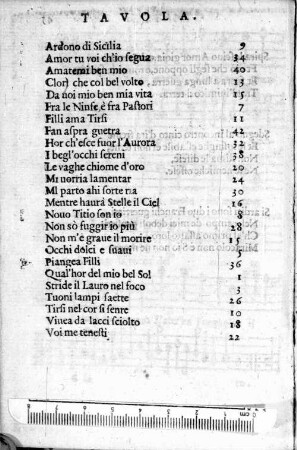 TAVOLA.
Ardono di Sicilia 9
Amor tu voi ch'io segua 34
Amatemi ben mio 40
Clori che col bel volto 13
Da noi mio ben mia vita 15
Fra le Ninfe è fra Pastori 7
Filli ama Tirsi 11
Fan aspra guerra 42
Hor ch'esce fuor l'Aurora 32
I begl'occhi sereni 38
Le vaghe chiome d'oro 20
Mi vorria lamentar 24
Mi parto ahi sorte ria 30
Mentre haurà Stelle il Ciel 16
Nouo Titio son io 8
Non sò fuggir io più 28
Non m'è graue il morire 15
Occhi dolci e suaui 5
Piangea Filli 36
Qual'hor del mio bel Sol 1
Stride il Lauro nel foco 3
Tuoni lampi saette 26
Tirsi nel cor si sente 10
Viuea da lacci sciolto 18
Voi me tenesti 22
cm